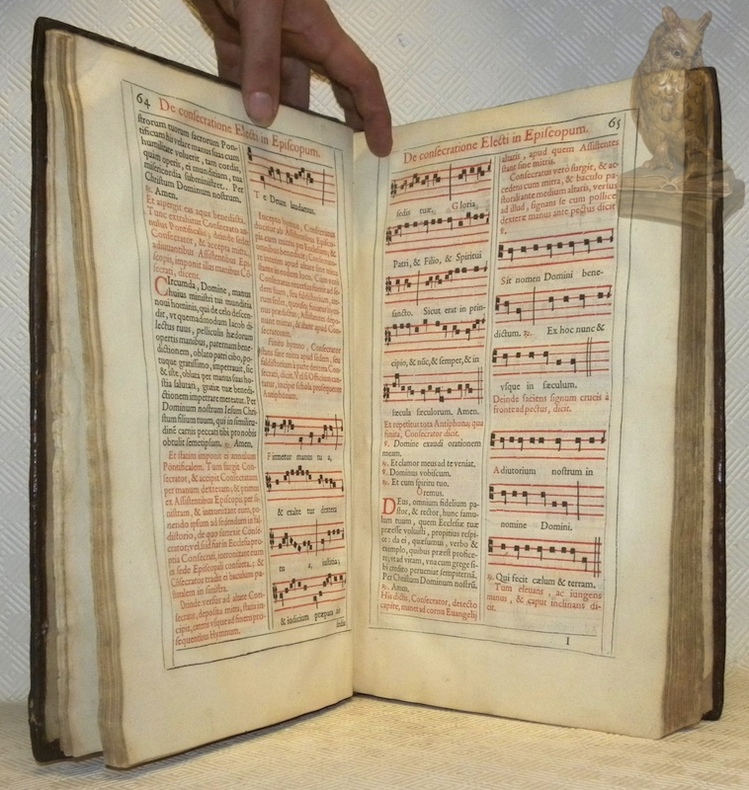 64
De consecratione Electi in Episcopum.
strorum tuorum sacrorum Pon-
tificum his velare manus suas cum
humilitate voluerit, tam cordis,
quàm operis, ei munditiam, tua
misericordia subministret. Per
Christum Dominum nostrum.
℟. Amen.
Circumda, Domine, manus
huius ministri tui munditia
noui hominis, qui de cælo descen-
dit, vt quemadmodum Iacob di-
lectus tuus, pelliculis hœdorum
opertis manibus, paternam bene-
dictionem, oblato patri cibo, po-
tuque gratissimo, impetrauit, sic
& iste, oblata per manus suas ho-
stia salutari, gratiæ tuæ benedi-
ctionem impetrare mereatur. Per
Dominum nostrum Iesum Chri-
stum filium tuum, qui in similitu-
dinē carnis peccati tibi pro nobis
obtulit semetipsum. ℟. Amen.
Et statim imponit ei annulum
Pontificalem. Tum surgit Con-
secrator, & accipit Consecratum
per manum dexteram; & primus
ex Assistentibus Episcopis per si-
nistram, & inthronizant eum, po-
nendo ipsum ad sedendum in fal-
distorio, de quo surrexit Conse-
crator; vel si id fiat in Ecclesia pro-
pria Consecrati, inthronizant eum
in sede Episcopali consueta; &
Cōsecrator tradit ei baculum pa-
storalem in sinistra.
Deinde versus ad altare Con-
secrator, deposita mitra, stans in-
cipit, ceteris vsque ad finem pro-
sequentibus Hymnum.
Te Deum laudamus.
Finito hymno, Consecrator
Antiphonam.
Firmetur manus tu a,
& exalte tur dextera
tu a, iustitia;
& iudicium præpara tio
sedis
De consecratione Electi in Episcopum.
65
sedis tuæ. Gloria
Patri, & Filio, & Spiritui
sancto. Sicut erat in prin-
cipio, & nūc, & semper, & in
sæcula sæculorum. Amen.
Et repetitur tota Antiphona; qua
finita, Consecrator dicit.
℣. Domine exaudi orationem
meam.
℟. Et clamor meus ad te veniat.
℣. Dominus vobiscum.
℟. Et cum spiritu tuo.
Oremus.
Deus, omnium fidelium pa-
stor, & rector, hunc famu-
lum tuum, quem Ecclesiæ tuæ
præesse voluisti, propitius respi-
ce: da ei, quæsumus, verbo &
exemplo, quibus præest profice-
re; vt ad vitam, vna cum grege si-
bi credito perueniat sempiternā.
Per Christum Dominum nostrū.
℟. Amen.
His dictis, Consecrator, detecto
capite, manet ad cornu Euangelij
altaris, apud quem Assistentes
stant sine mitris.
Consecratus verò surgit, & ac-
cedens cum mitra, & baculo pa-
storali ante medium altaris, versus
ad illud, signans se cum pollice
dexteræ manus ante pectus dicit
℣.
Sit nomen Domini bene-
dictum. ℟. Ex hoc nunc &
vsque in sæculum.
Deinde faciens signum crucis à
fronte ad pectus, dicit.
Adiutorium nostrum in
nomine Domini.
℟. Qui fecit cælum & terram.
Tum eleuans, ac iungens
manus, & caput inclinans di-
cit.
I